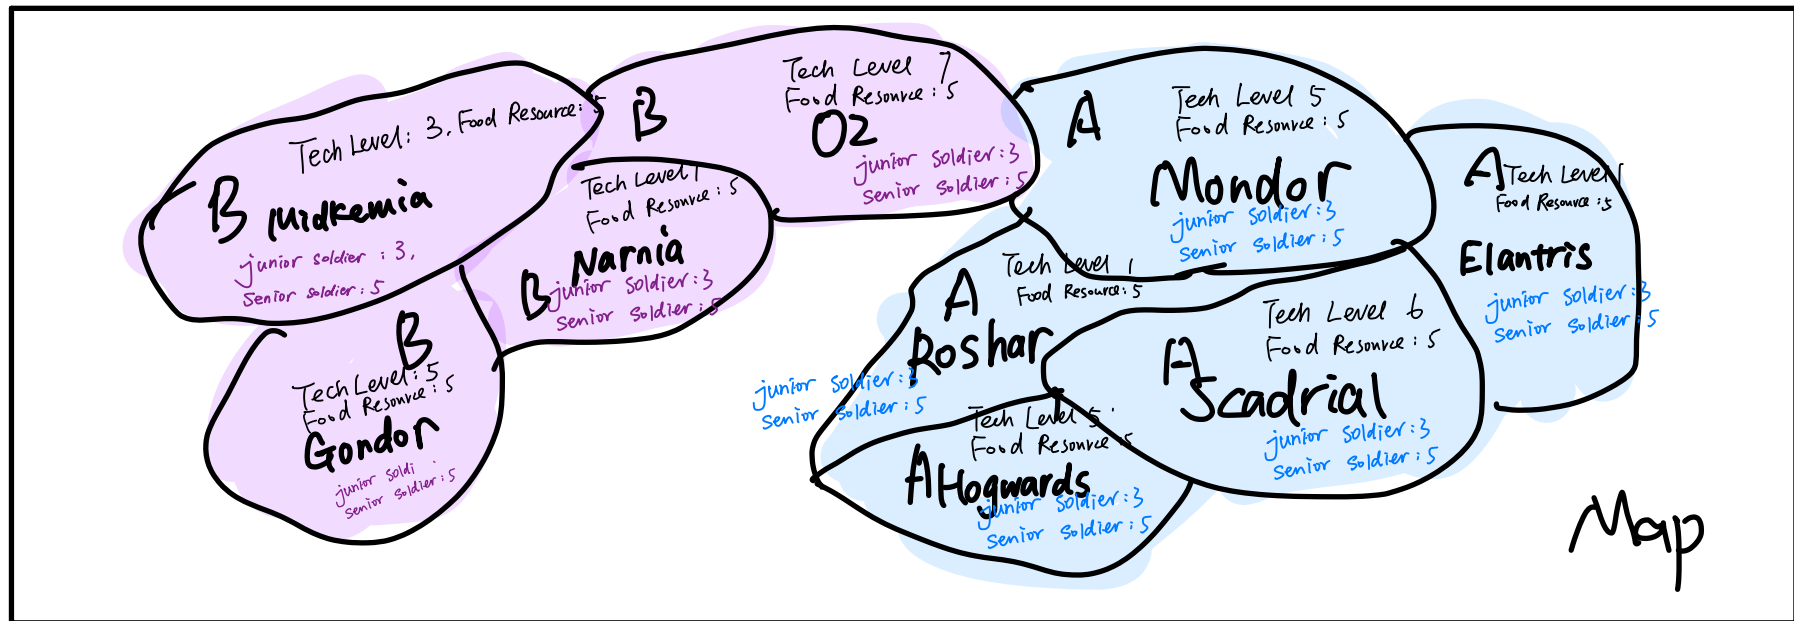 Tech Level: 3, Food Resource: 5
B Midkemia
junior soldier : 3,
senior soldier : 5
Tech Level 7
Food Resource : 5
B
Oz
junior soldier : 3
senior soldier : 5
Tech Level 1
Food Resource : 5
Narnia
B
junior soldier : 3
senior soldier : 5
B
Tech Level : 5
Food Resource : 5
Gondor
junior soldi
senior soldier : 5
A
Tech Level 5
Food Resource : 5
Mondor
junior soldier : 3
senior soldier : 5
A
Tech Level 1
Food Resource : 5
Elantris
junior soldier : 3
senior soldier : 5
Tech Level 1
Food Resource : 5
A
Roshar
junior soldier : 3
senior soldier : 5
Tech Level 6
Food Resource : 5
A
Scadrial
junior soldier : 3
senior soldier : 5
Tech Level 5
Food Resource : 5
A Hogwards
junior soldier : 3
senior soldier : 5
Map